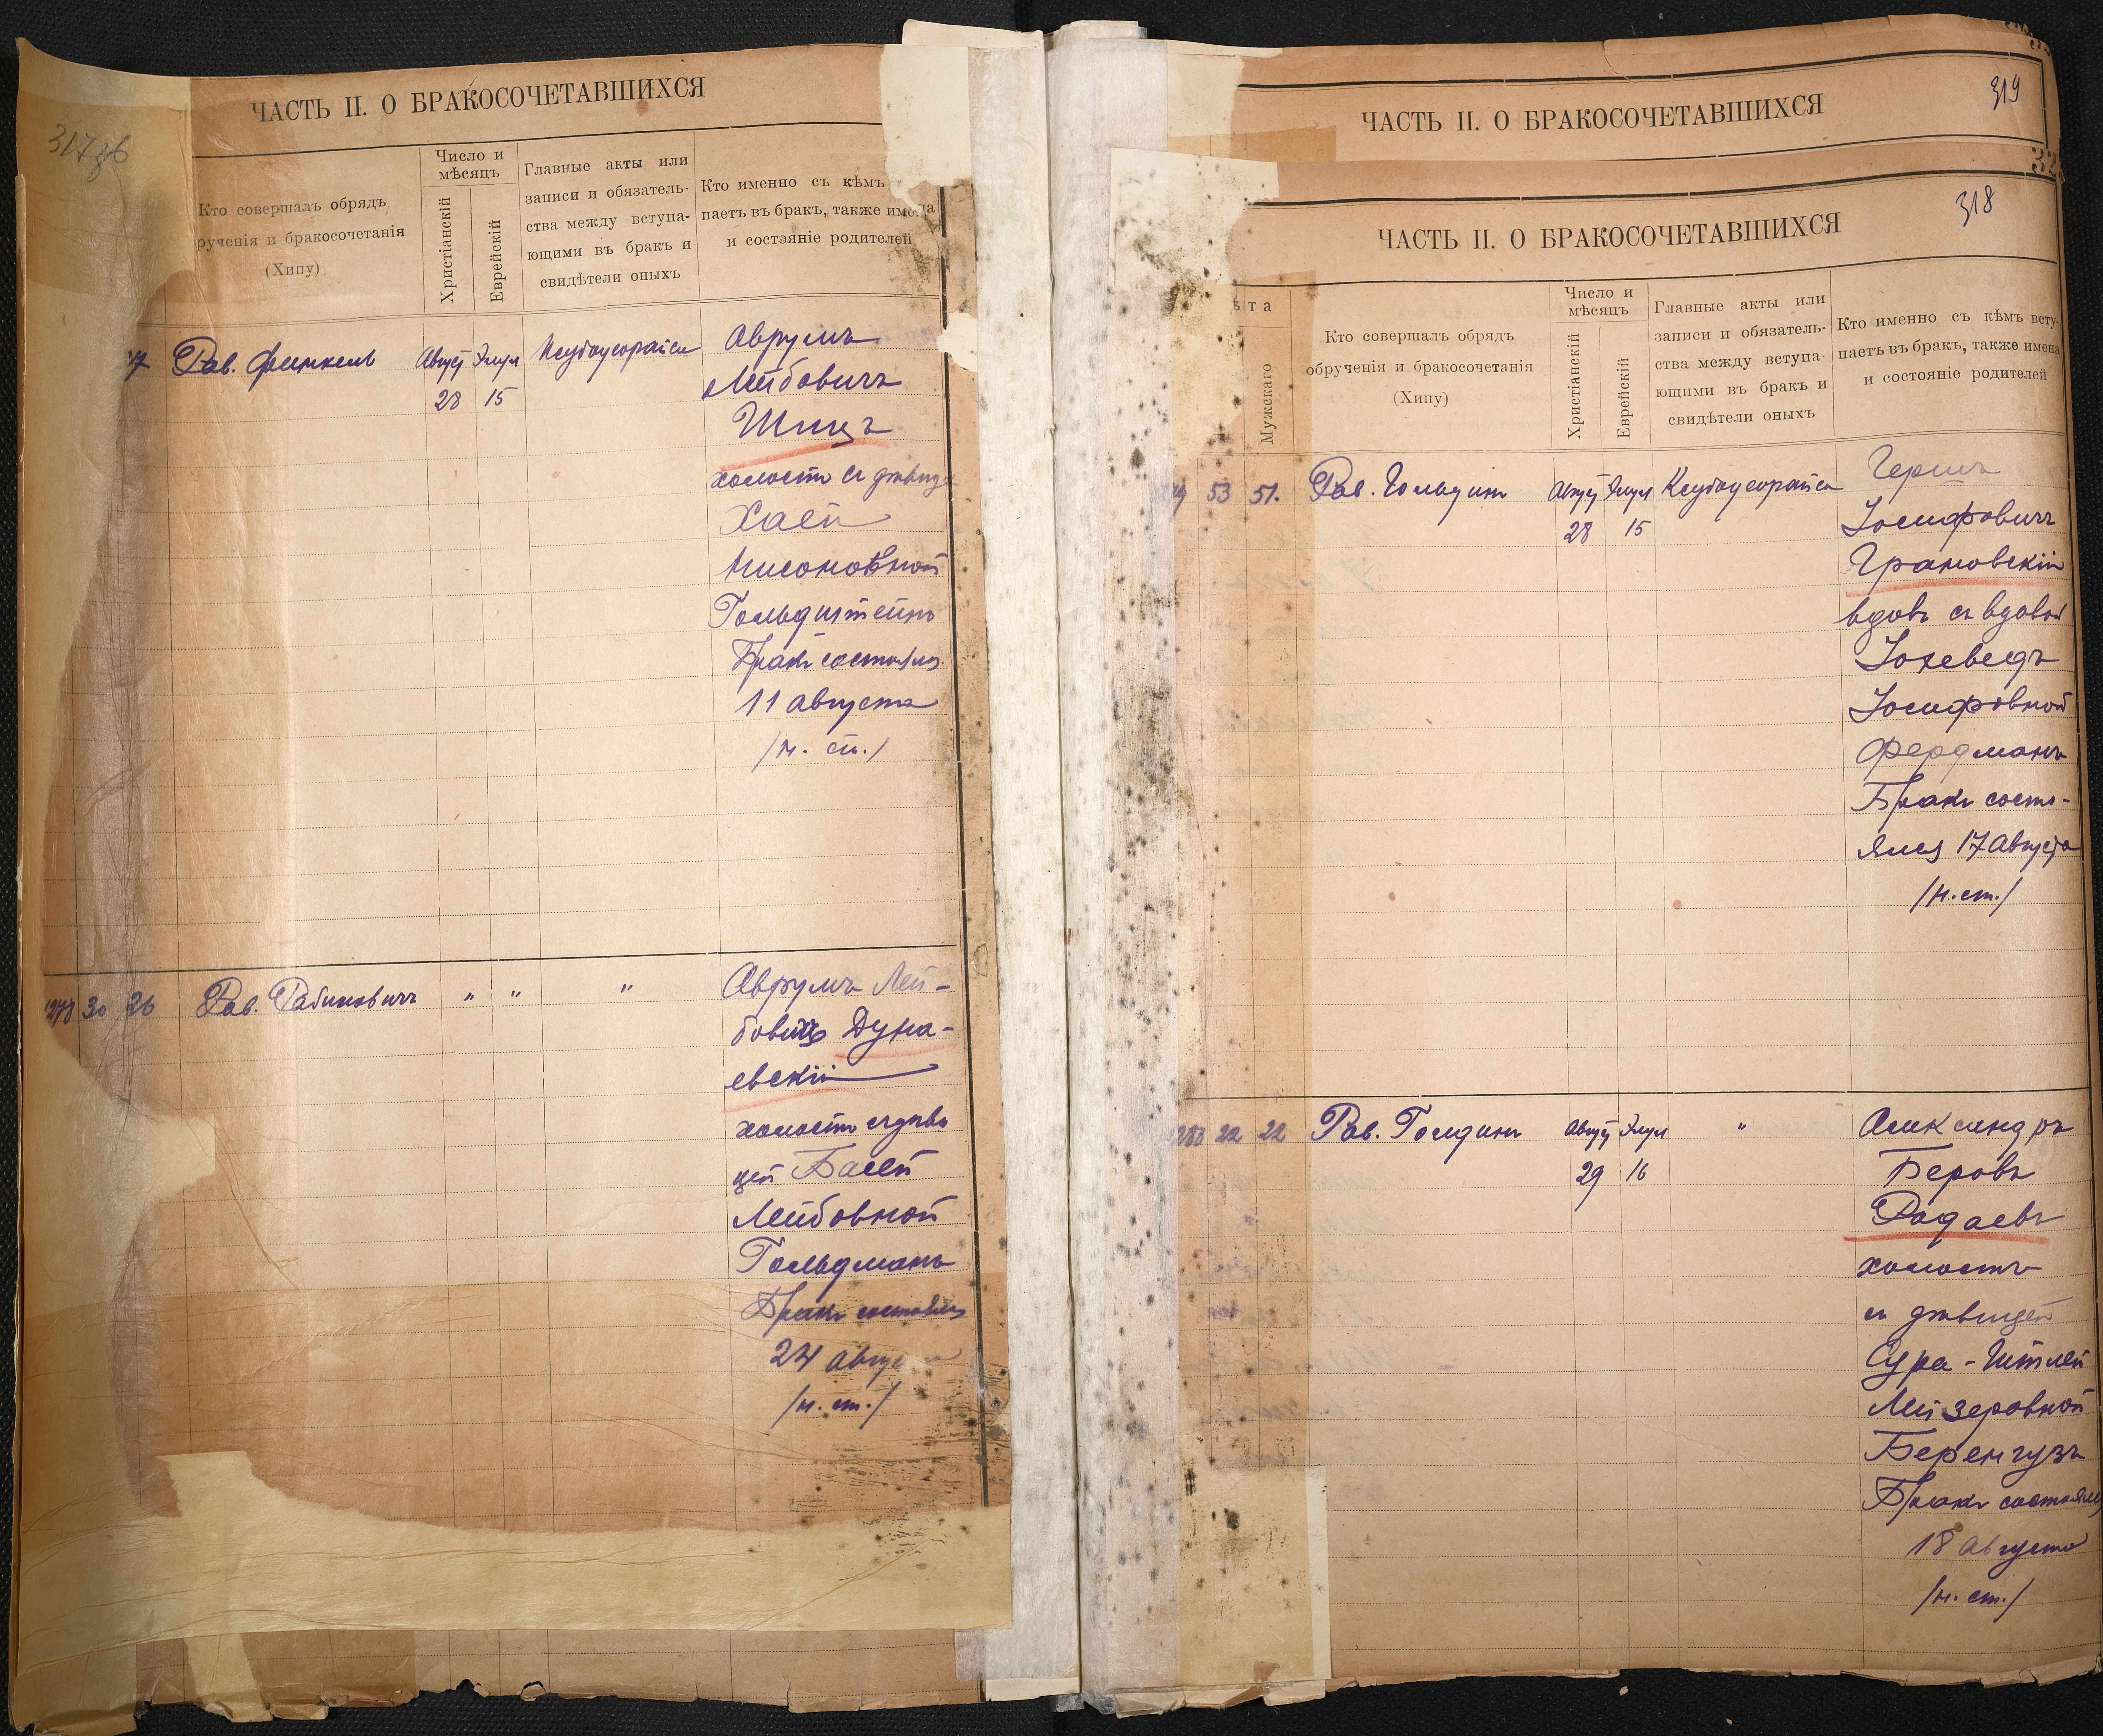 ЧАСТЬ II. О БРАКОСОЧЕТАВШИХСЯ
Кто совершалъ обрядъ
рученія и бракосочетанія
(Хипу)
Число и
мѣсяцъ
Христіанскій
Еврейскій
Главные акты или
записи и обязатель-
ства между вступа-
ющими въ бракъ и
свидѣтели оныхъ
Кто именно съ кѣмъ
паетъ въ бракъ, также имена
и состояніе родителей
Рав. Финкель
Август Элул
28 15
Аврумъ
Лейбовичъ
Шицъ
холостъ съ дѣвиц
Хаей
Нисоновной
Гольдштейнъ
Бракъ состоялся
11 августа
/н. ст./
1278 30 26
Рав. Рабиновичъ
" " "
Аврумъ Лей-
бовичъ Дуна-
евскій
холостъ съ дѣви
цей Басей
Лейбовной
Гольдманъ
Бракъ состоялся
24 августа
/н. ст./
ЧАСТЬ II. О БРАКОСОЧЕТАВШИХСЯ
319
318
ЧАСТЬ II. О БРАКОСОЧЕТАВШИХСЯ
ѣта
Мужскаго
Кто совершалъ обрядъ
обрученія и бракосочетанія
(Хипу)
Число и
мѣсяцъ
Христіанскій
Еврейскій
Главные акты или
записи и обязатель-
ства между вступа-
ющими въ бракъ и
свидѣтели оныхъ
Кто именно съ кѣмъ всту-
паетъ въ бракъ, также имена
и состояніе родителей
53 51.
Рав. Гольдинъ
Август Элул
28 15
Гершъ
Іосифовичъ
Грановскій
вдовъ съ вдовой
Іохеведъ
Іосифовной
Фердманъ
Бракъ состо-
ялся 17 Августа
/н. ст./
22 22
Рав. Голдинъ
Август Элул
29 16
"
Александръ
Беровъ
Радаевъ
холостъ
съ дѣвицей
Сура-Гитлей
Лейзеровной
Беренгузъ
Бракъ состоялся
18 августа
/н. ст./